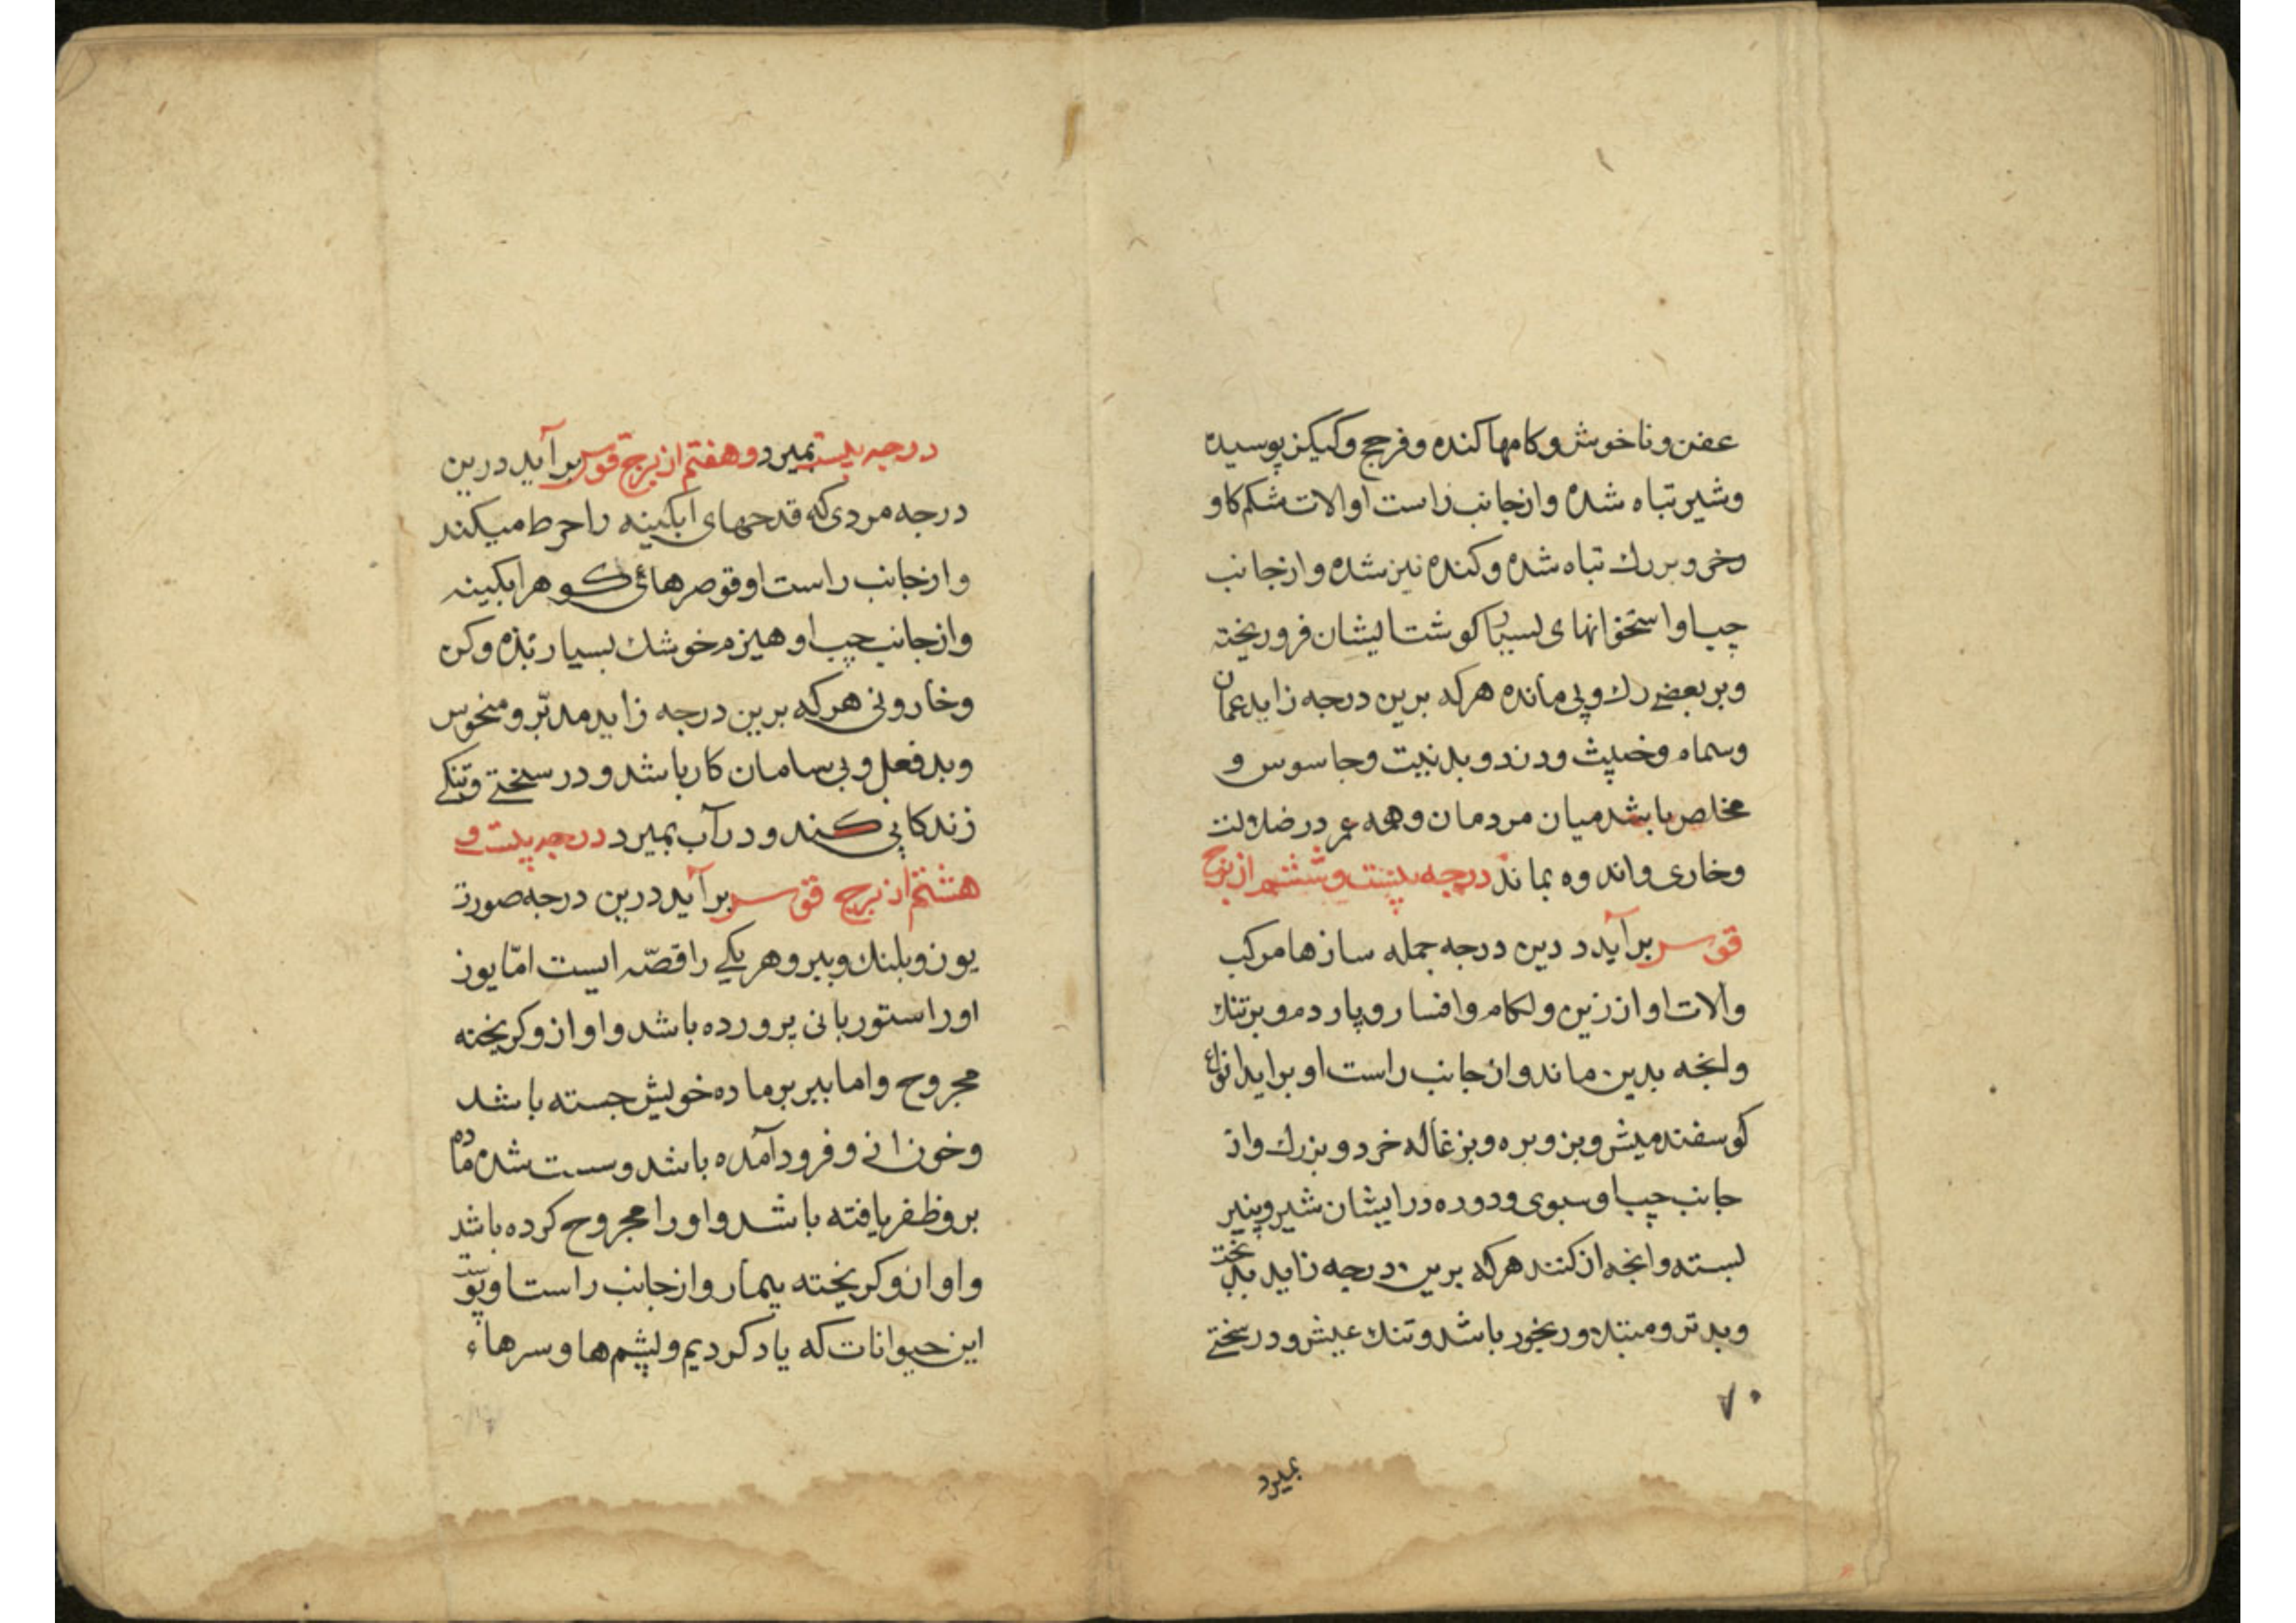 عفن و ناخوش و کامها کنده و فرجج و کیکز پوسیده
و شیر تباه شده و از جانب راست او الات شکم کاو
و خر و بزرك تباه شده و کنده نیز شده و از جانب
چپ او استخوانهای بسیار کوشت ایشان فرو ریخته
و بر بعضے رك و پی مانده هرکه برین درجه زاید عمان
و سماه و خبیث و دزد و بد نیت و جاسوس و
مخاص باشد میان مردمان و همه عمر در ضلالت
و خاری و اندوه بماند درجه بیست و ششم از برج
قوس برآید د دین درجه جمله سازها مرکب
و الات او از زین و لکام و افسار و پاردم و برتنك
و انجه بدین ماند و از جانب راست او براید انواع
کوسفند میش و بز و بره و بزغاله خرد و بزرك و از
جانب چپ او سبوی و دوره در ایشان شیر و پنیر
بسته و انجه از کنند هرکه برین درجه زاید بدبخت
و بد تر و مبتلا و رنجور باشد و تنك عیش و در سختے
۷۰
بمیرد
درجه بیست بمیرد و هفتم از برج قوس برآید درین
درجه مردی که قدحهای ابکینه را خرط میکند
و از جانب راست او قوصرهائی کوهر ابکینه
و از جانب چپ او هیزم خوشك بسیار تبذه وکن
و خار و نی هرکه برین درجه زاید مدبّر و منحوس
و بد فعل و بی سامان کار باشد و در سختے و تنکے
زندکانی کند و در آب بمیرد درجه بیست و
هشتم از برج قوس برآید درین درجه صورت
یوز و پلنك و ببر و هر یکے را قصّه ایست امّا یوز
او را ستوربانی پرورده باشد و او از و کریخته
مجروح و اما ببر بر ماده خویش جسته باشد
و خون از نے و فرود آمده باشد و سست شده ماده
برو ظفر یافته باشد و او را مجروح کرده باشد
و او ازو کریخته بیمار و از جانب راست او پوست
این حیوانات که یاد کردیم و پشم ها و سرهاء